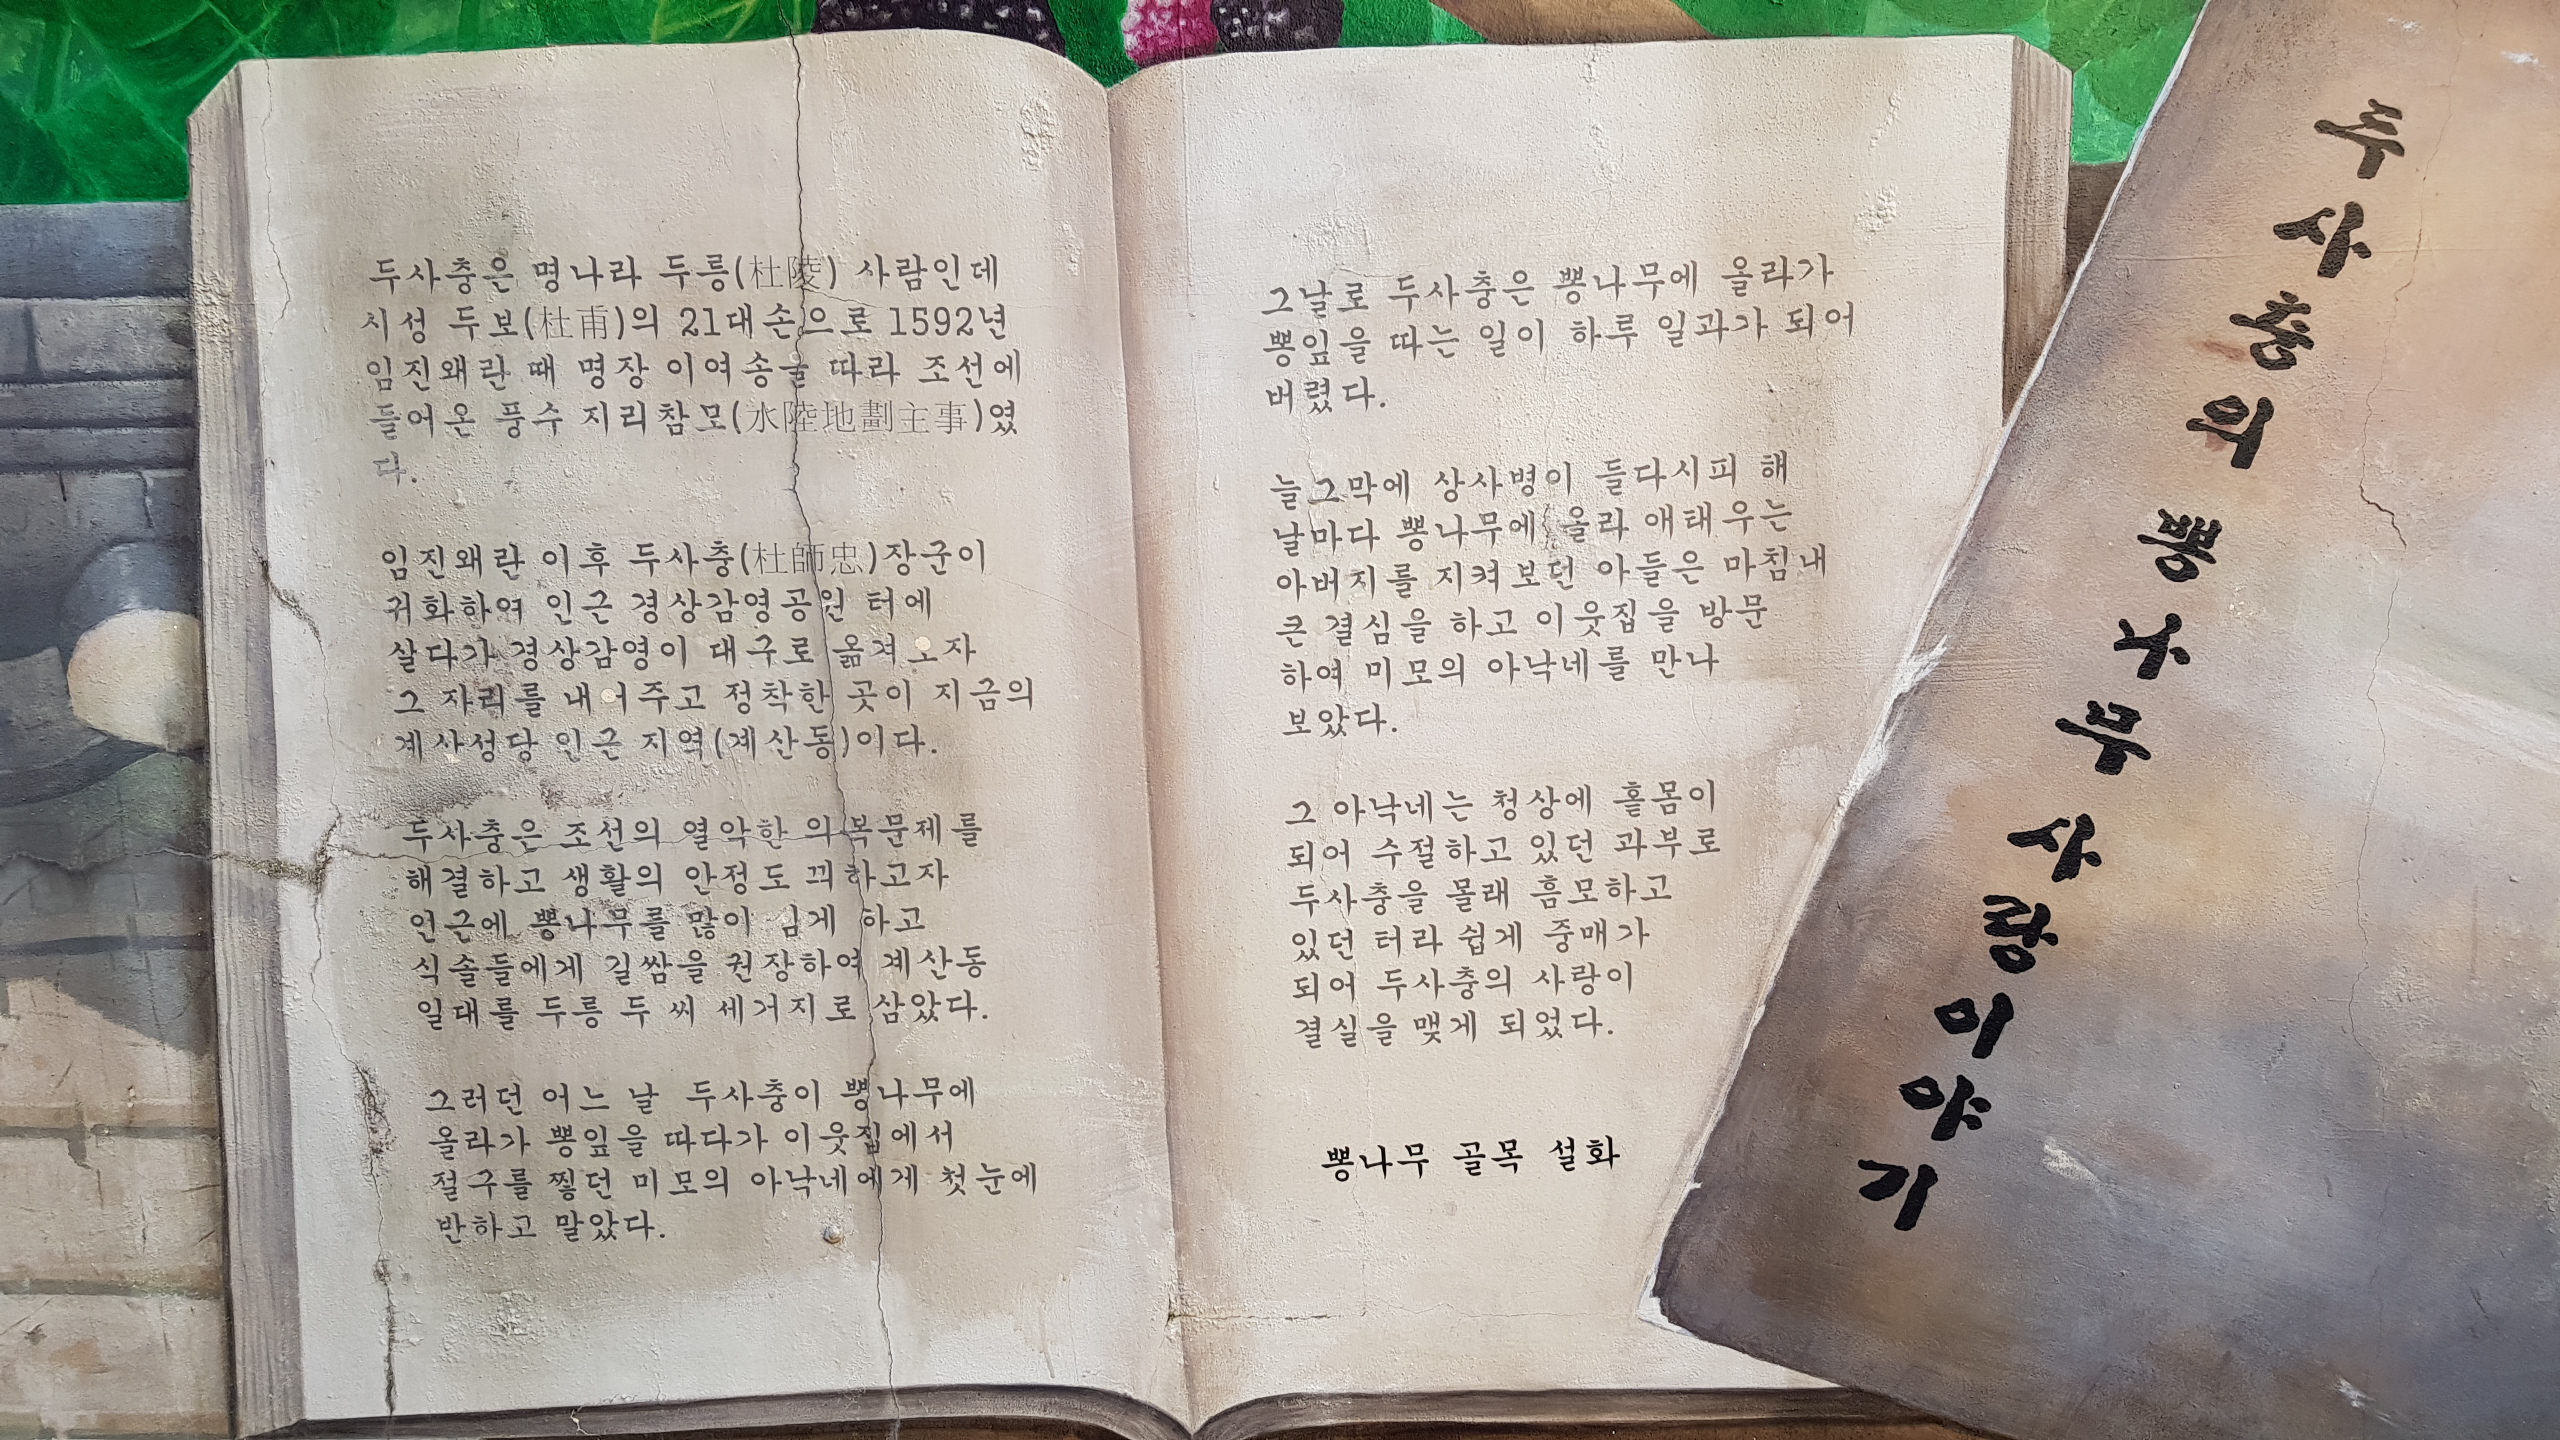 두사충은 명나라 두릉(杜陵) 사람인데
시성 두보(杜甫)의 21대손으로 1592년
임진왜란 때 명장 이여송을 따라 조선에
들어온 풍수 지리참모(水陸地劃主事)였
다.
임진왜란 이후 두사충(杜師忠)장군이
귀화하여 인근 경상감영공원 터에
살다가 경상감영이 대구로 옮겨오자
그 자리를 내어주고 정착한 곳이 지금의
계사성당 인근 지역(계산동)이다.
두사충은 조선의 열악한 의복문제를
해결하고 생활의 안정도 꾀하고자
인근에 뽕나무를 많이 심게 하고
식솔들에게 길쌈을 권장하여 계산동
일대를 두릉 두 씨 세거지로 삼았다.
그러던 어느 날 두사충이 뽕나무에
올라가 뽕잎을 따다가 이웃집에서
절구를 찧던 미모의 아낙네에게 첫눈에
반하고 말았다.
그날로 두사충은 뽕나무에 올라가
뽕잎을 따는 일이 하루 일과가 되어
버렸다.
늘그막에 상사병이 들다시피 해
날마다 뽕나무에 올라 애태우는
아버지를 지켜보던 아들은 마침내
큰 결심을 하고 이웃집을 방문
하여 미모의 아낙네를 만나
보았다.
그 아낙네는 청상에 홀몸이
되어 수절하고 있던 과부로
두사충을 몰래 흠모하고
있던 터라 쉽게 중매가
되어 두사충의 사랑이
결실을 맺게 되었다.
뽕나무 골목 설화
두사충의 뽕나무 사랑이야기